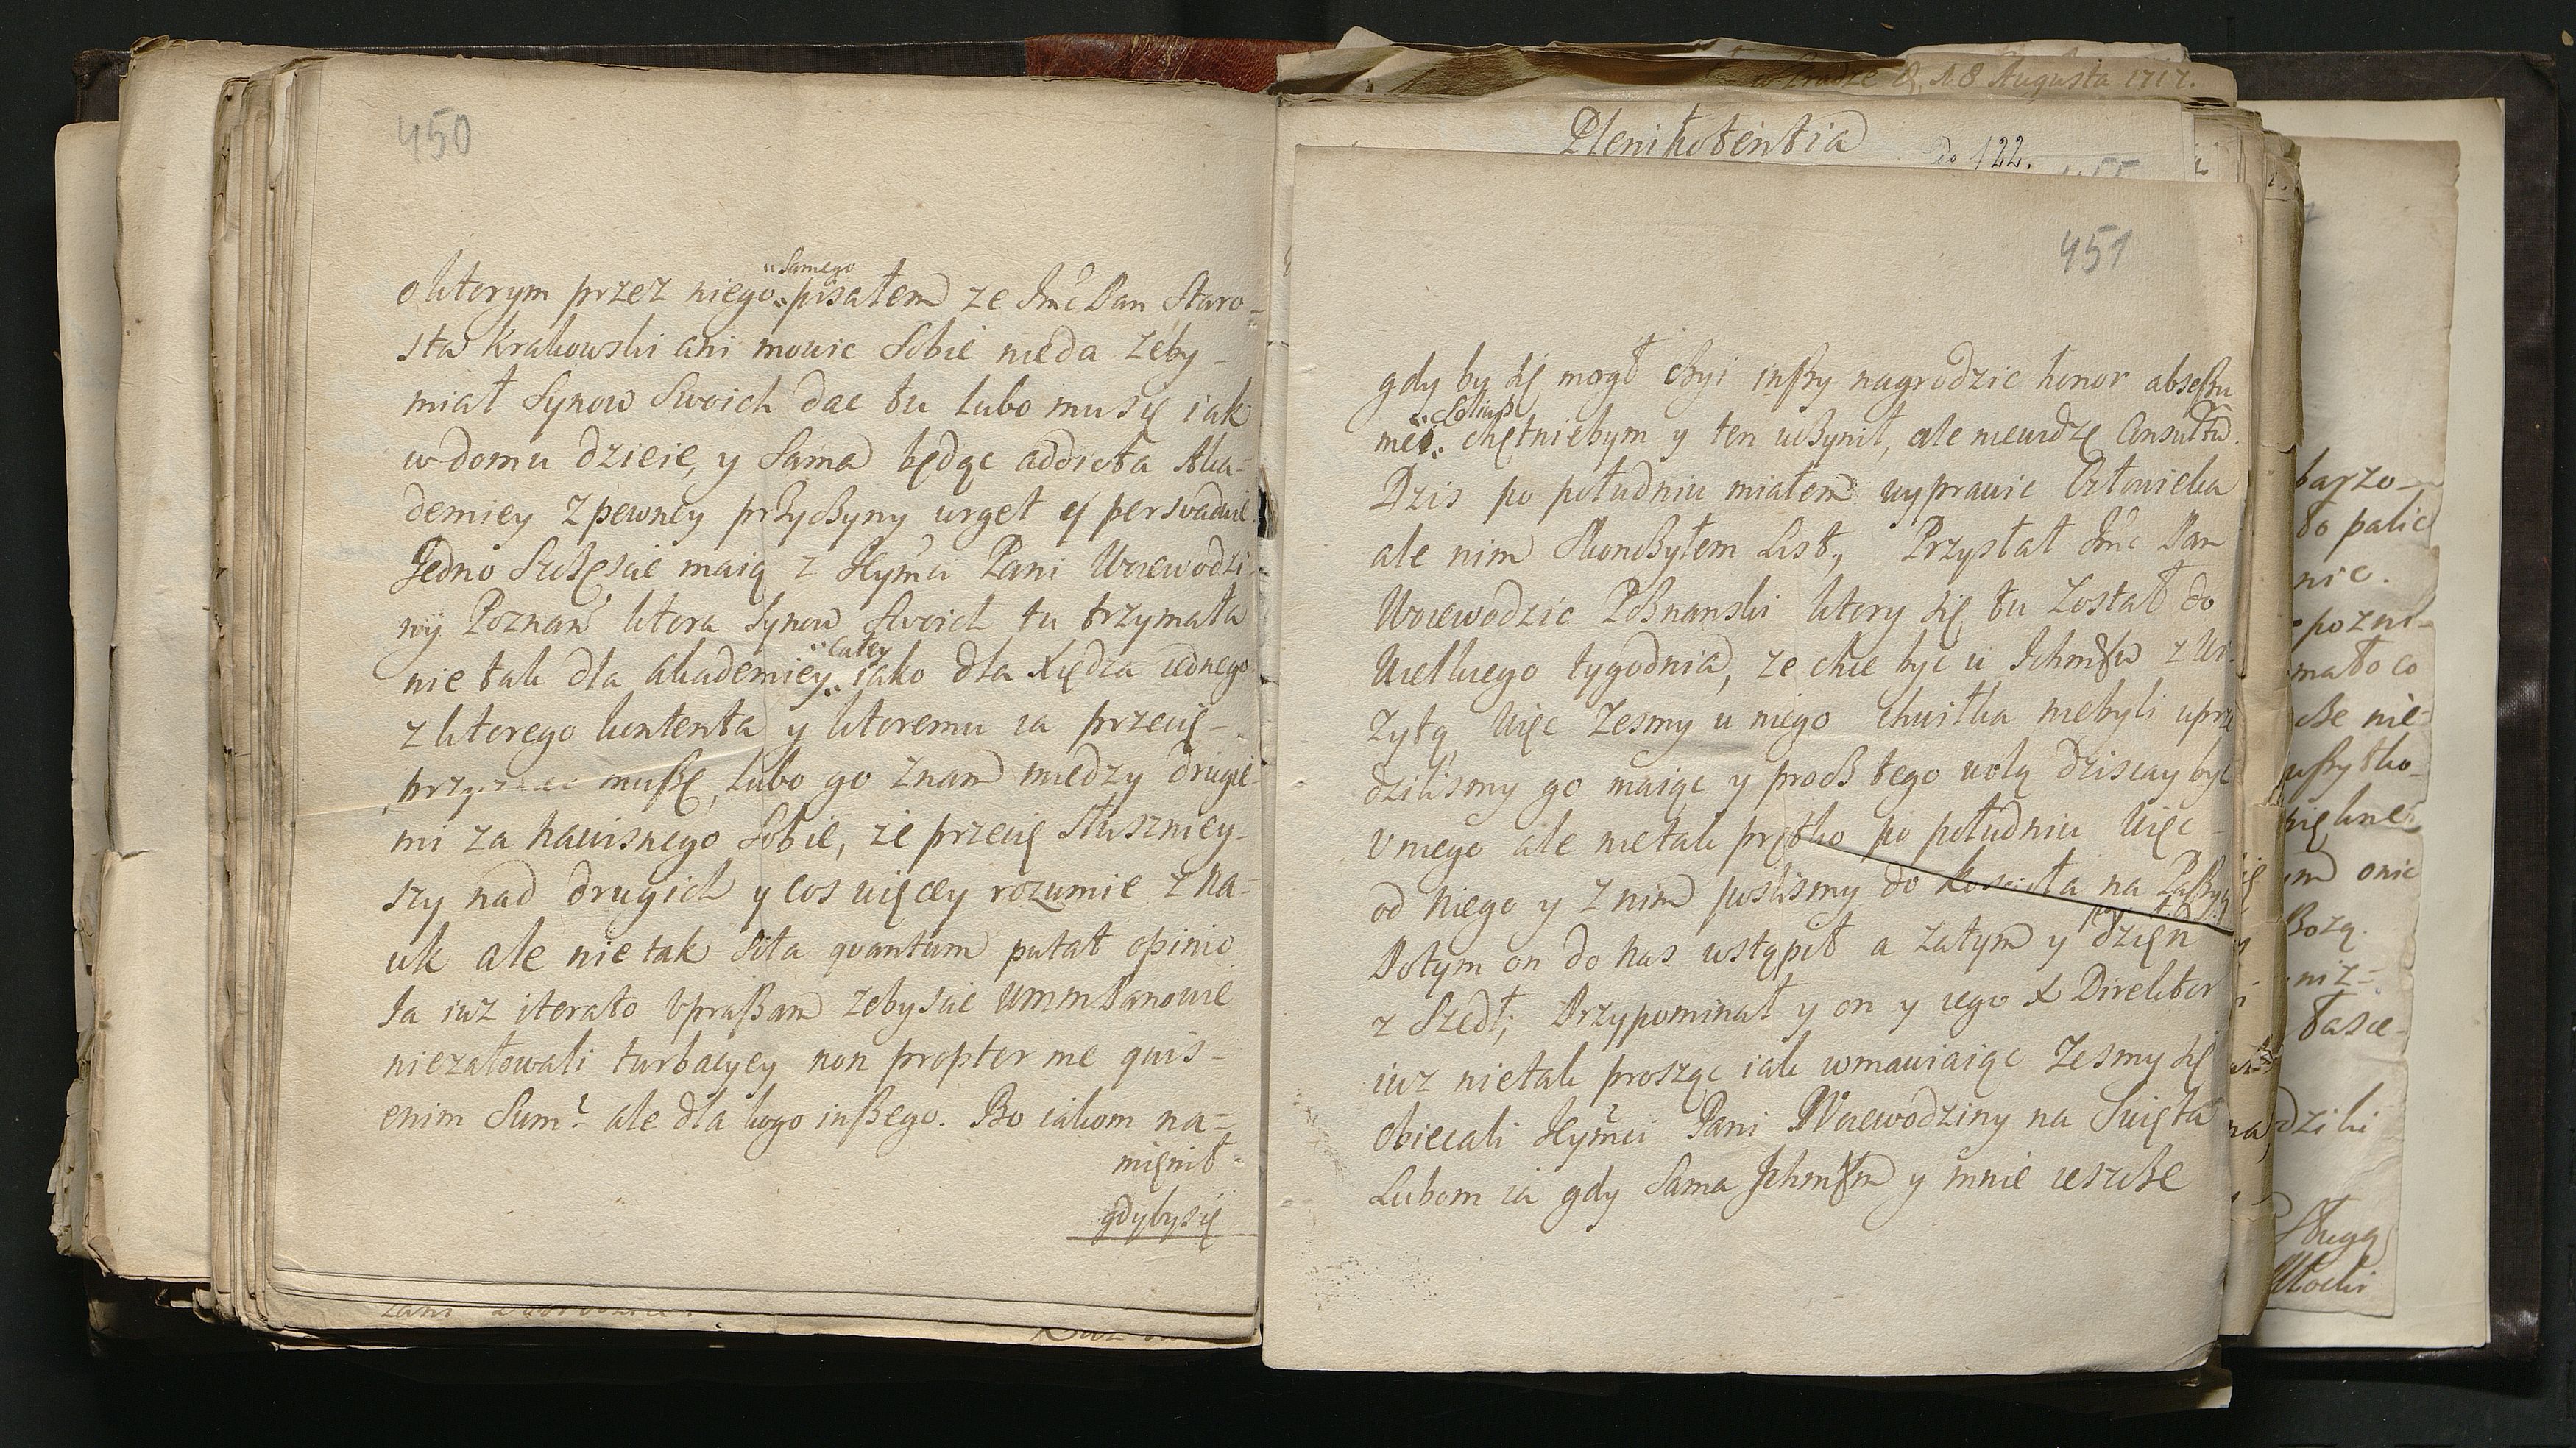 450
o ktorym przez niego samego pisałem ze Jmć Pan Staro-
sta Krakowski ani mowic Sobie nieda zeby-
miał Synow Swoich dac tu lubo mu się iak
w domu dzieie, y Sama będąc addicta Aka-
demiey z pewney przyczyny urget et persvaduie
Jedno Szczęscie maią z Jeymći Pani Woiewodzi-
ny Poznań ktora Synow Swoich tu trzymała
nie tak dla Akademiey całey iako dla Xiędza iednego
z ktorego kontenta y ktoremu ia przecię-
muszę, lubo go znam miedzy drugie-
mi za nawisnego Sobie, że przecię słuszniey-
szy nad drugich y cos więcey rozumie z na-
uk ale nie tak siła quantum putat opinio
Ja iuz iterato upraszam zebyscie UmmPanowie
niezałowali turbacyey non propter me quis-
enim Sum? ale dla kogo inszego. Bo iakom na-
mięnił
gdyby się
w Pradze D. 18 Augusta 1717.
Plenipotentia
Do 122.
451
gdy by się mogł czyi inszy nagrodzic honor absessu
mei chętniebym y ten uczynił, ale niewidzę Consultu.
Dzis po południu miałem wyprawic Człowieka
ale nim skonczyłem List, Przysłał Jmć Pan
Woiewodzic Poznanski ktory się tu został do
Wielkiego tygodnia, ze chce byc u Ichmsw z wi-
zytą, Więc zesmy u niego chwilka niebyli uprze
dzilismy go maiąc y procz tego wolą dzisiay byc
u niego ale nietak prętko po południu Więc-
od niego y z nim poslismy do Koscioła na Passyą
Potym on do nas wstąpił a zatym y dzięn
zszedł; Przypominał y on y iego X Direktor
iuz nietak prosząc iak wmawiaiąc zesmy się
obiecali Jeymći Pani Woiewodziny na Swięta
Lubom ia gdy Sama Ichmsm y mnie ieszcze
barzo-
to palic
nic.
mało co
Bozą.
niz-
dzili
Sługą